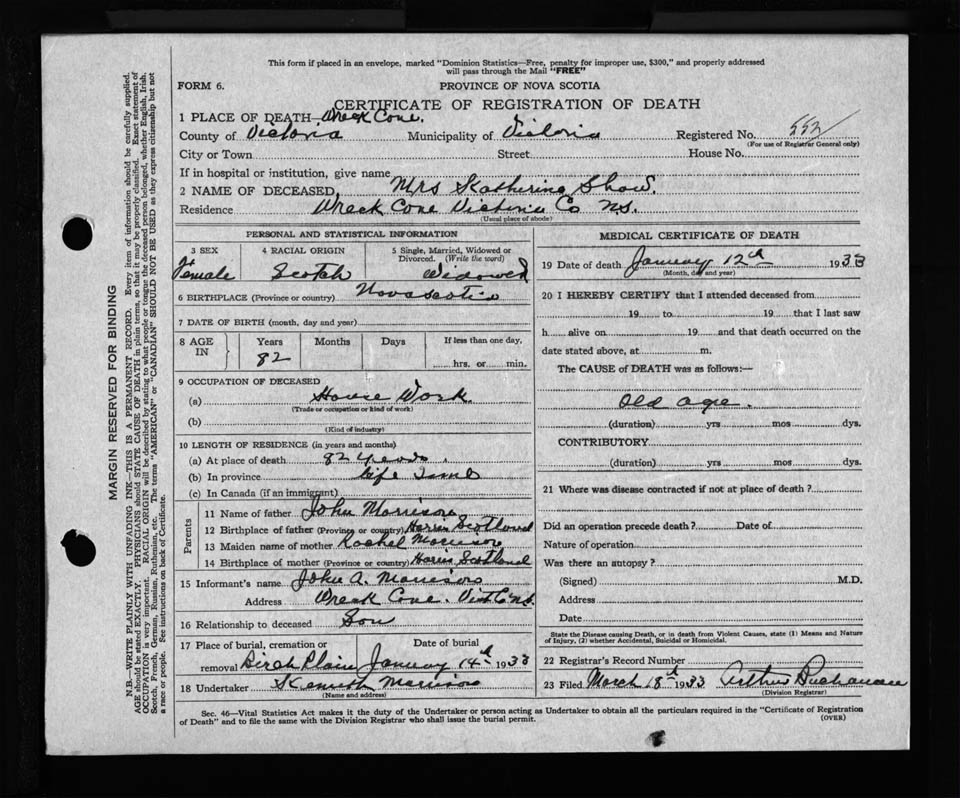 This form if placed in an envelope, marked "Dominion Statistics—Free, penalty for improper use, $300," and properly addressed
will pass through the Mail "FREE"
FORM 6. PROVINCE OF NOVA SCOTIA
CERTIFICATE OF REGISTRATION OF DEATH
1 PLACE OF DEATH Wreck Cove.
County of Victoria Municipality of Victoria Registered No. 553
(For use of Registrar General only)
City or Town Street House No.
If in hospital or institution, give name
2 NAME OF DECEASED Mrs Katherine Shaw.
Residence Wreck Cove Victoria Co N.S.
(Usual place of abode)
PERSONAL AND STATISTICAL INFORMATION
3 SEX 4 RACIAL ORIGIN 5 Single, Married, Widowed or
Divorced. (Write the word)
Female Scotch Widowed
6 BIRTHPLACE (Province or country) Nova Scotia
7 DATE OF BIRTH (month, day and year)
8 AGE IN Years Months Days If less than one day,
82 hrs. or min.
9 OCCUPATION OF DECEASED
(a) House Work
(Trade or occupation or kind of work)
(b)
(Kind of industry)
10 LENGTH OF RESIDENCE (in years and months)
(a) At place of death 82 years.
(b) In province life Time
(c) In Canada (if an immigrant)
Parents
11 Name of father John Morrison
12 Birthplace of father (Province or country) Harris Scotland
13 Maiden name of mother Rachel Morrison
14 Birthplace of mother (Province or country) Harris Scotland
15 Informant's name John A. Morrison
Address Wreck Cove. Vict Co N.S.
16 Relationship to deceased Son
17 Place of burial, cremation or Date of burial
removal Birch Plain January 14th 1933
18 Undertaker Kenneth Morrison
(Name and address)
MEDICAL CERTIFICATE OF DEATH
19 Date of death January 12th 1933
(Month, day and year)
20 I HEREBY CERTIFY that I attended deceased from
19 to 19 that I last saw
h alive on 19 and that death occurred on the
date stated above, at m.
The CAUSE of DEATH was as follows:—
Old age.
(duration) yrs mos dys.
CONTRIBUTORY
(duration) yrs mos dys.
21 Where was disease contracted if not at place of death?
Did an operation precede death? Date of
Nature of operation
Was there an autopsy?
(Signed) M.D.
Address
Date
State the Disease causing Death, or in death from Violent Causes, state (1) Means and Nature
of Injury, (2) whether Accidental, Suicidal or Homicidal.
22 Registrar's Record Number
23 Filed March 18th 1933 Arthur Buchanan
(Division Registrar)
Sec. 46—Vital Statistics Act makes it the duty of the Undertaker or person acting as Undertaker to obtain all the particulars required in the "Certificate of Registration
of Death" and to file the same with the Division Registrar who shall issue the burial permit. (OVER)
MARGIN RESERVED FOR BINDING
N.B.—WRITE PLAINLY WITH UNFADING INK—THIS IS A PERMANENT RECORD. Every item of information should be carefully supplied.
AGE should be stated EXACTLY. PHYSICIANS should STATE CAUSE OF DEATH in plain terms, so that it may be properly classified. Exact statement of
OCCUPATION is very important. RACIAL ORIGIN will be described by stating to what people or tongue the deceased person belonged, whether English, Irish,
Scotch, French, German, Russian, Ruthenian, etc. The terms "AMERICAN" or "CANADIAN" SHOULD NOT BE USED as they express citizenship but not
a race or people. See instructions on back of Certificate.